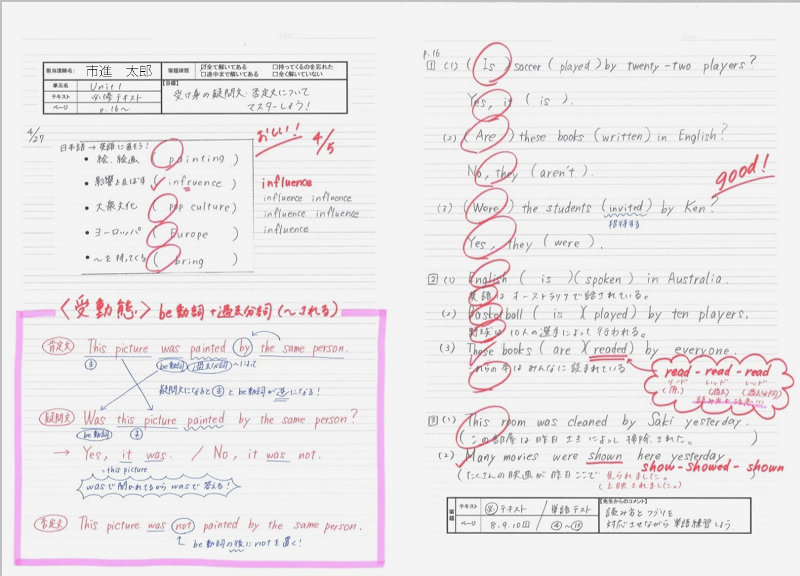 担当講師名: 市進 太郎
宿題確認 ☑全て解いてある □持ってくるのを忘れた
□途中まで解いてある □全く解いていない
単元名 Unit 1
テキスト 必修テキスト
ページ p.16〜
【目標】
受け身の疑問文・否定文について
マスターしよう!
4/27
日本語→英語に直そう!
おしい! 4/5
・絵、絵画 ( painting )
・影響を及ぼす ( infruence )
influence
influence influence
influence influence
influence
・大衆文化 ( pop culture )
・ヨーロッパ ( Europe )
・〜を持ってくる ( bring )
〈受動態〉 be動詞+過去分詞(〜される)
肯定文 This picture was painted by the same person.
主 be動詞 過去分詞 〜によって
疑問文になると主とbe動詞が逆になる!
疑問文 Was this picture painted by the same person?
be動詞 主
→ Yes, it was. / No, it was not.
=this picture
wasで聞かれてるからwasで答える!
否定文 This picture was not painted by the same person.
be動詞の後にnotを置く!
p.16
1 (1) ( Is ) soccer ( played ) by twenty-two players?
Yes, it ( is ).
(2) ( Are ) these books ( written ) in English?
No, they ( aren't ).
good!
(3) ( Were ) the students ( invited ) by Ken?
招待する
Yes, they ( were ).
2 (1) English ( is )( spoken ) in Australia.
英語はオーストラリアで話されている。
(2) Basketball ( is )( played ) by ten players.
野球は10人の選手によって行われる。
(3) These books ( are )( readed ) by everyone.
これらの本はみんなに読まれている
read - read - read
リード レッド レッド
(原) (過去) (過去分詞)
3 (1) This room was cleaned by Saki yesterday.
(この部屋は昨日さきによって掃除された。)
(2) Many movies were shown here yesterday
show - showed - shown
(たくさんの映画が昨日ここで見られました。)
(上映されました。)
宿題
テキスト 必テキスト 単語テスト
ページ 8.9.10回 ④〜⑬
【先生からのコメント】
読み方とつづりを
対応させながら単語練習しよう